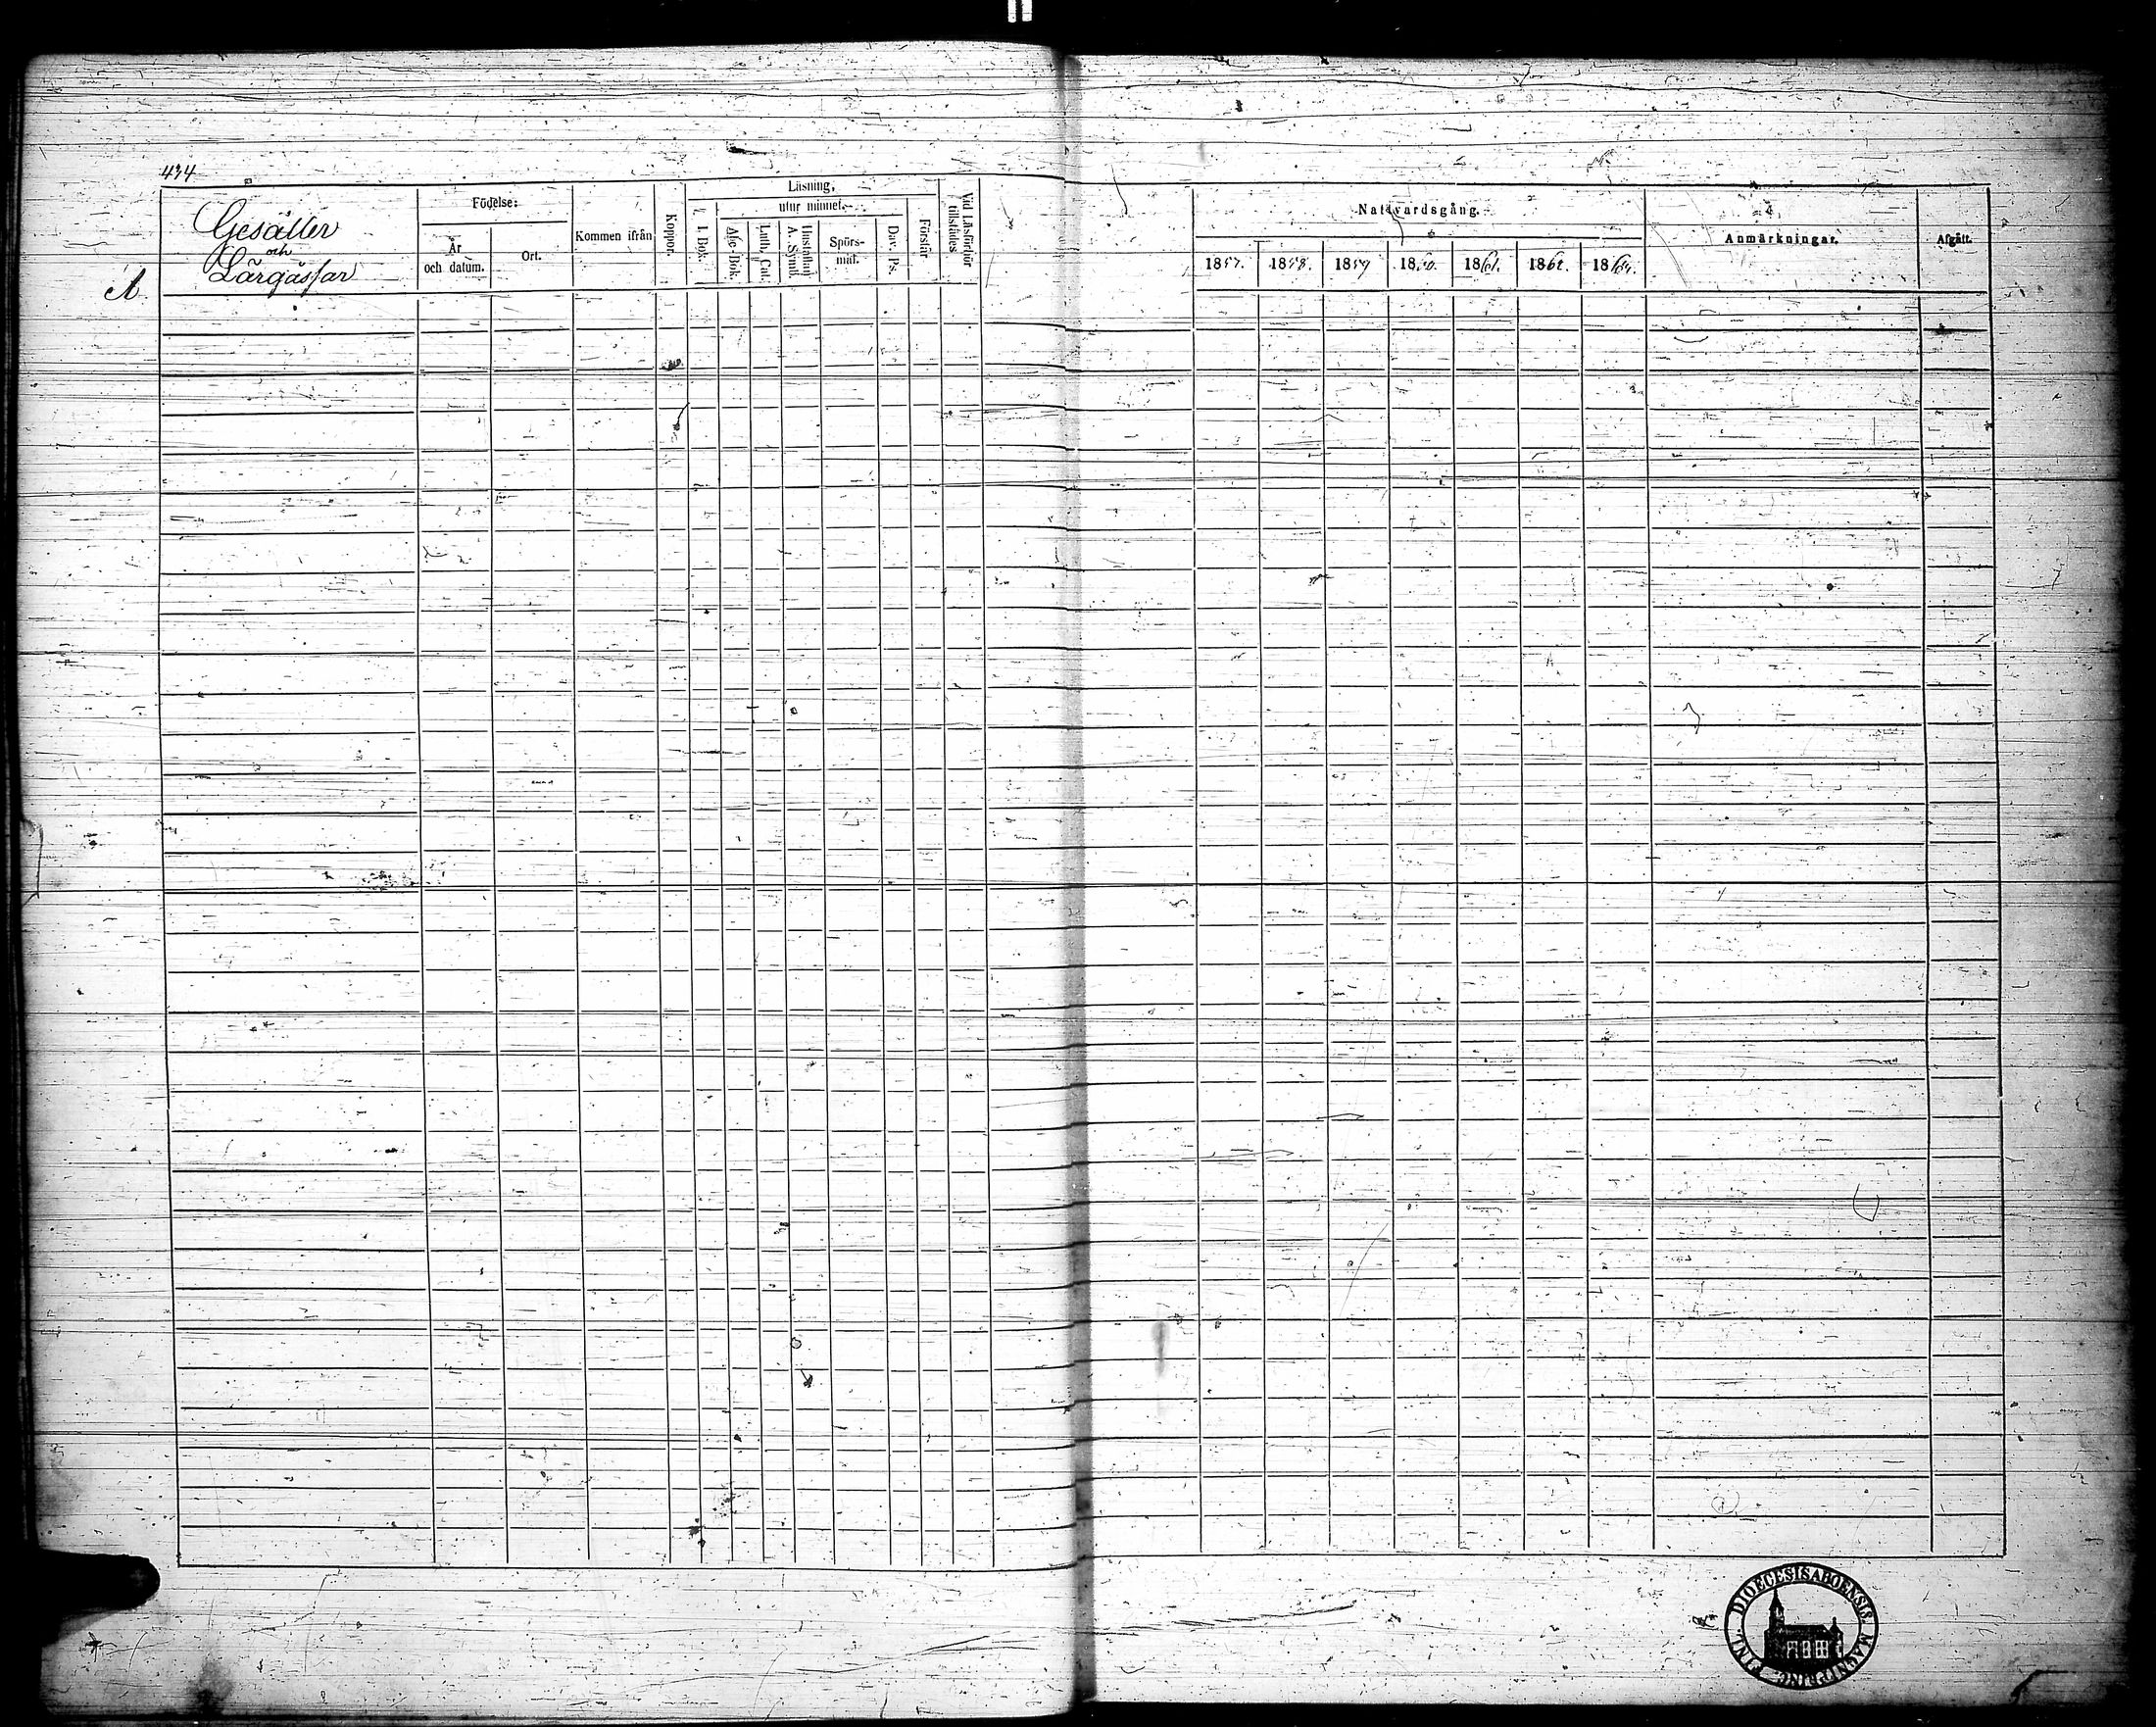 434
Gesäller
och
Lärgåssar
A.
Födelse:
År
och datum.
Ort.
Kommen ifrån
Koppor.
Läsning,
utur minnet.
I. Bok.
Abc-Bok.
Luth. Cat.
Hustaflan
A. Symb.
Spörs-
mål.
Dav. Ps.
Förstår
Vid Läsförhör
tillstädes.
Nattvardsgång.
1857.
1858.
1859
1860.
1861.
1862.
186
Anmärkningar.
Afgått.
DIOECESIS ABOENSIS. MAGNI PRINC. FINL.